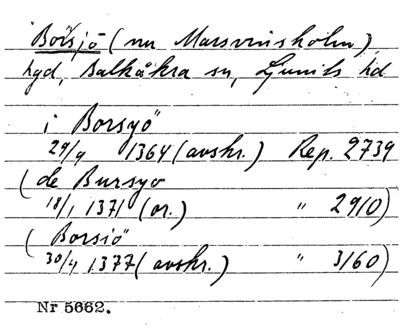 Borsjö (nu Marsvinsholm),
hgd, Balkåkra sn, Ljunits hd
i Borsyö
29/9 1364 (avskr.) Rep. 2739
(de Bursyo
18/1 1371 (or.) " 2910)
(Borsiö
30/4 1377 (avskr.) " 3160)
Nr 5662.